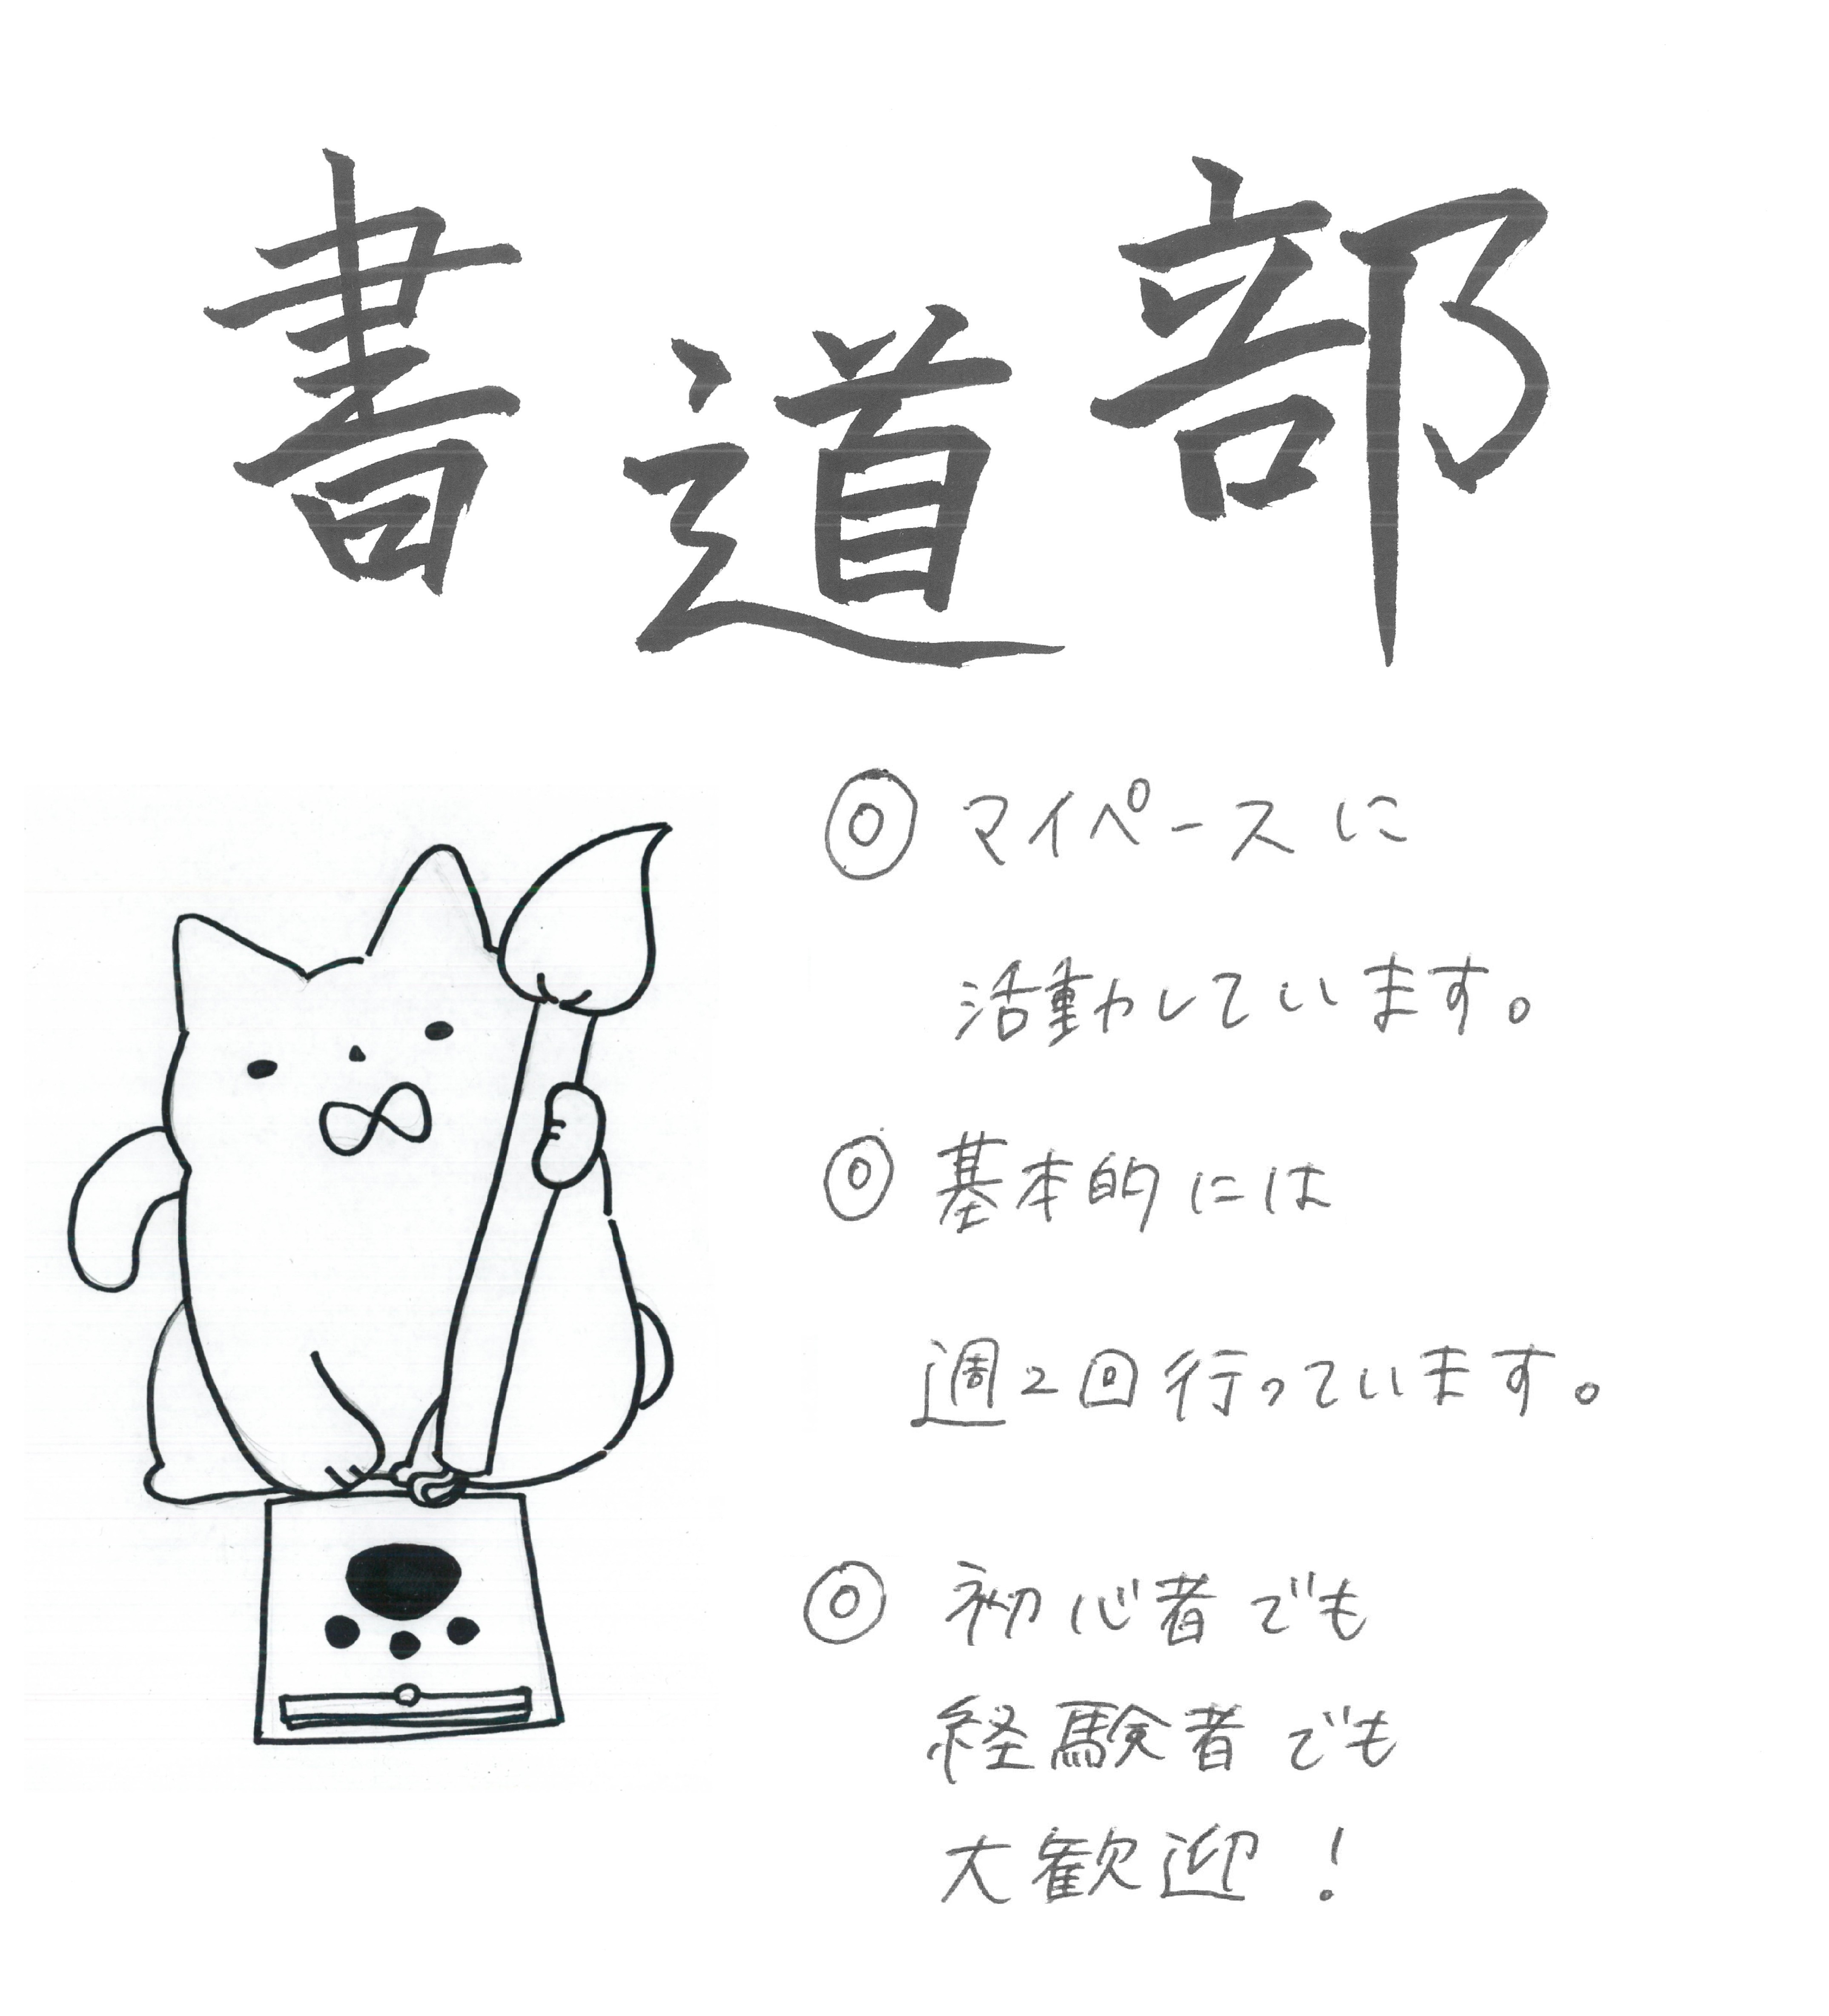 書道部
◎ マイペースに
活動しています。
◎ 基本的には
週2回行っています。
◎ 初心者でも
経験者でも
大歓迎！